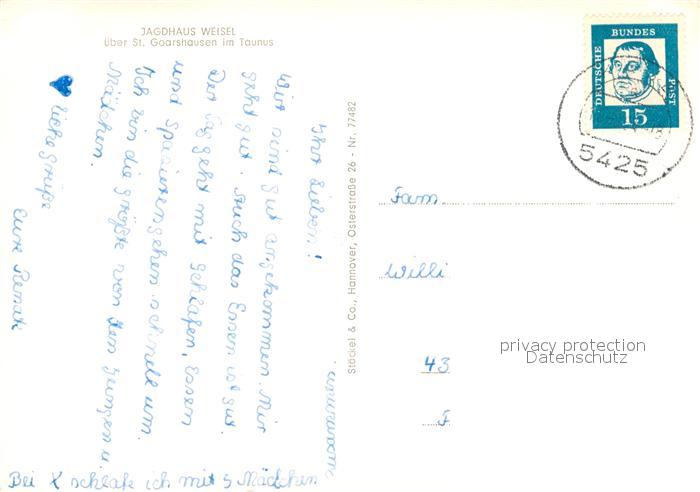 JAGDHAUS WEISEL
über St. Goarshausen im Taunus
Ihr Lieben!
Wir sind gut angekommen. Mir
geht gut. Auch das Essen ist gut.
Der Tag geht mit schlafen, Essen
und spazierengehen schnell um.
Ich bin die größte von den Jungen u.
Mädchen.
liche Grüße
Eure Renate
Bei X schlafe ich mit 5 Mädchen
zusammen
Stöckel & Co., Hannover, Osterstraße 26 - Nr. 77482
DEUTSCHE
BUNDES
POST
15
5425
Fam.
Willi
43
F
privacy protection
Datenschutz